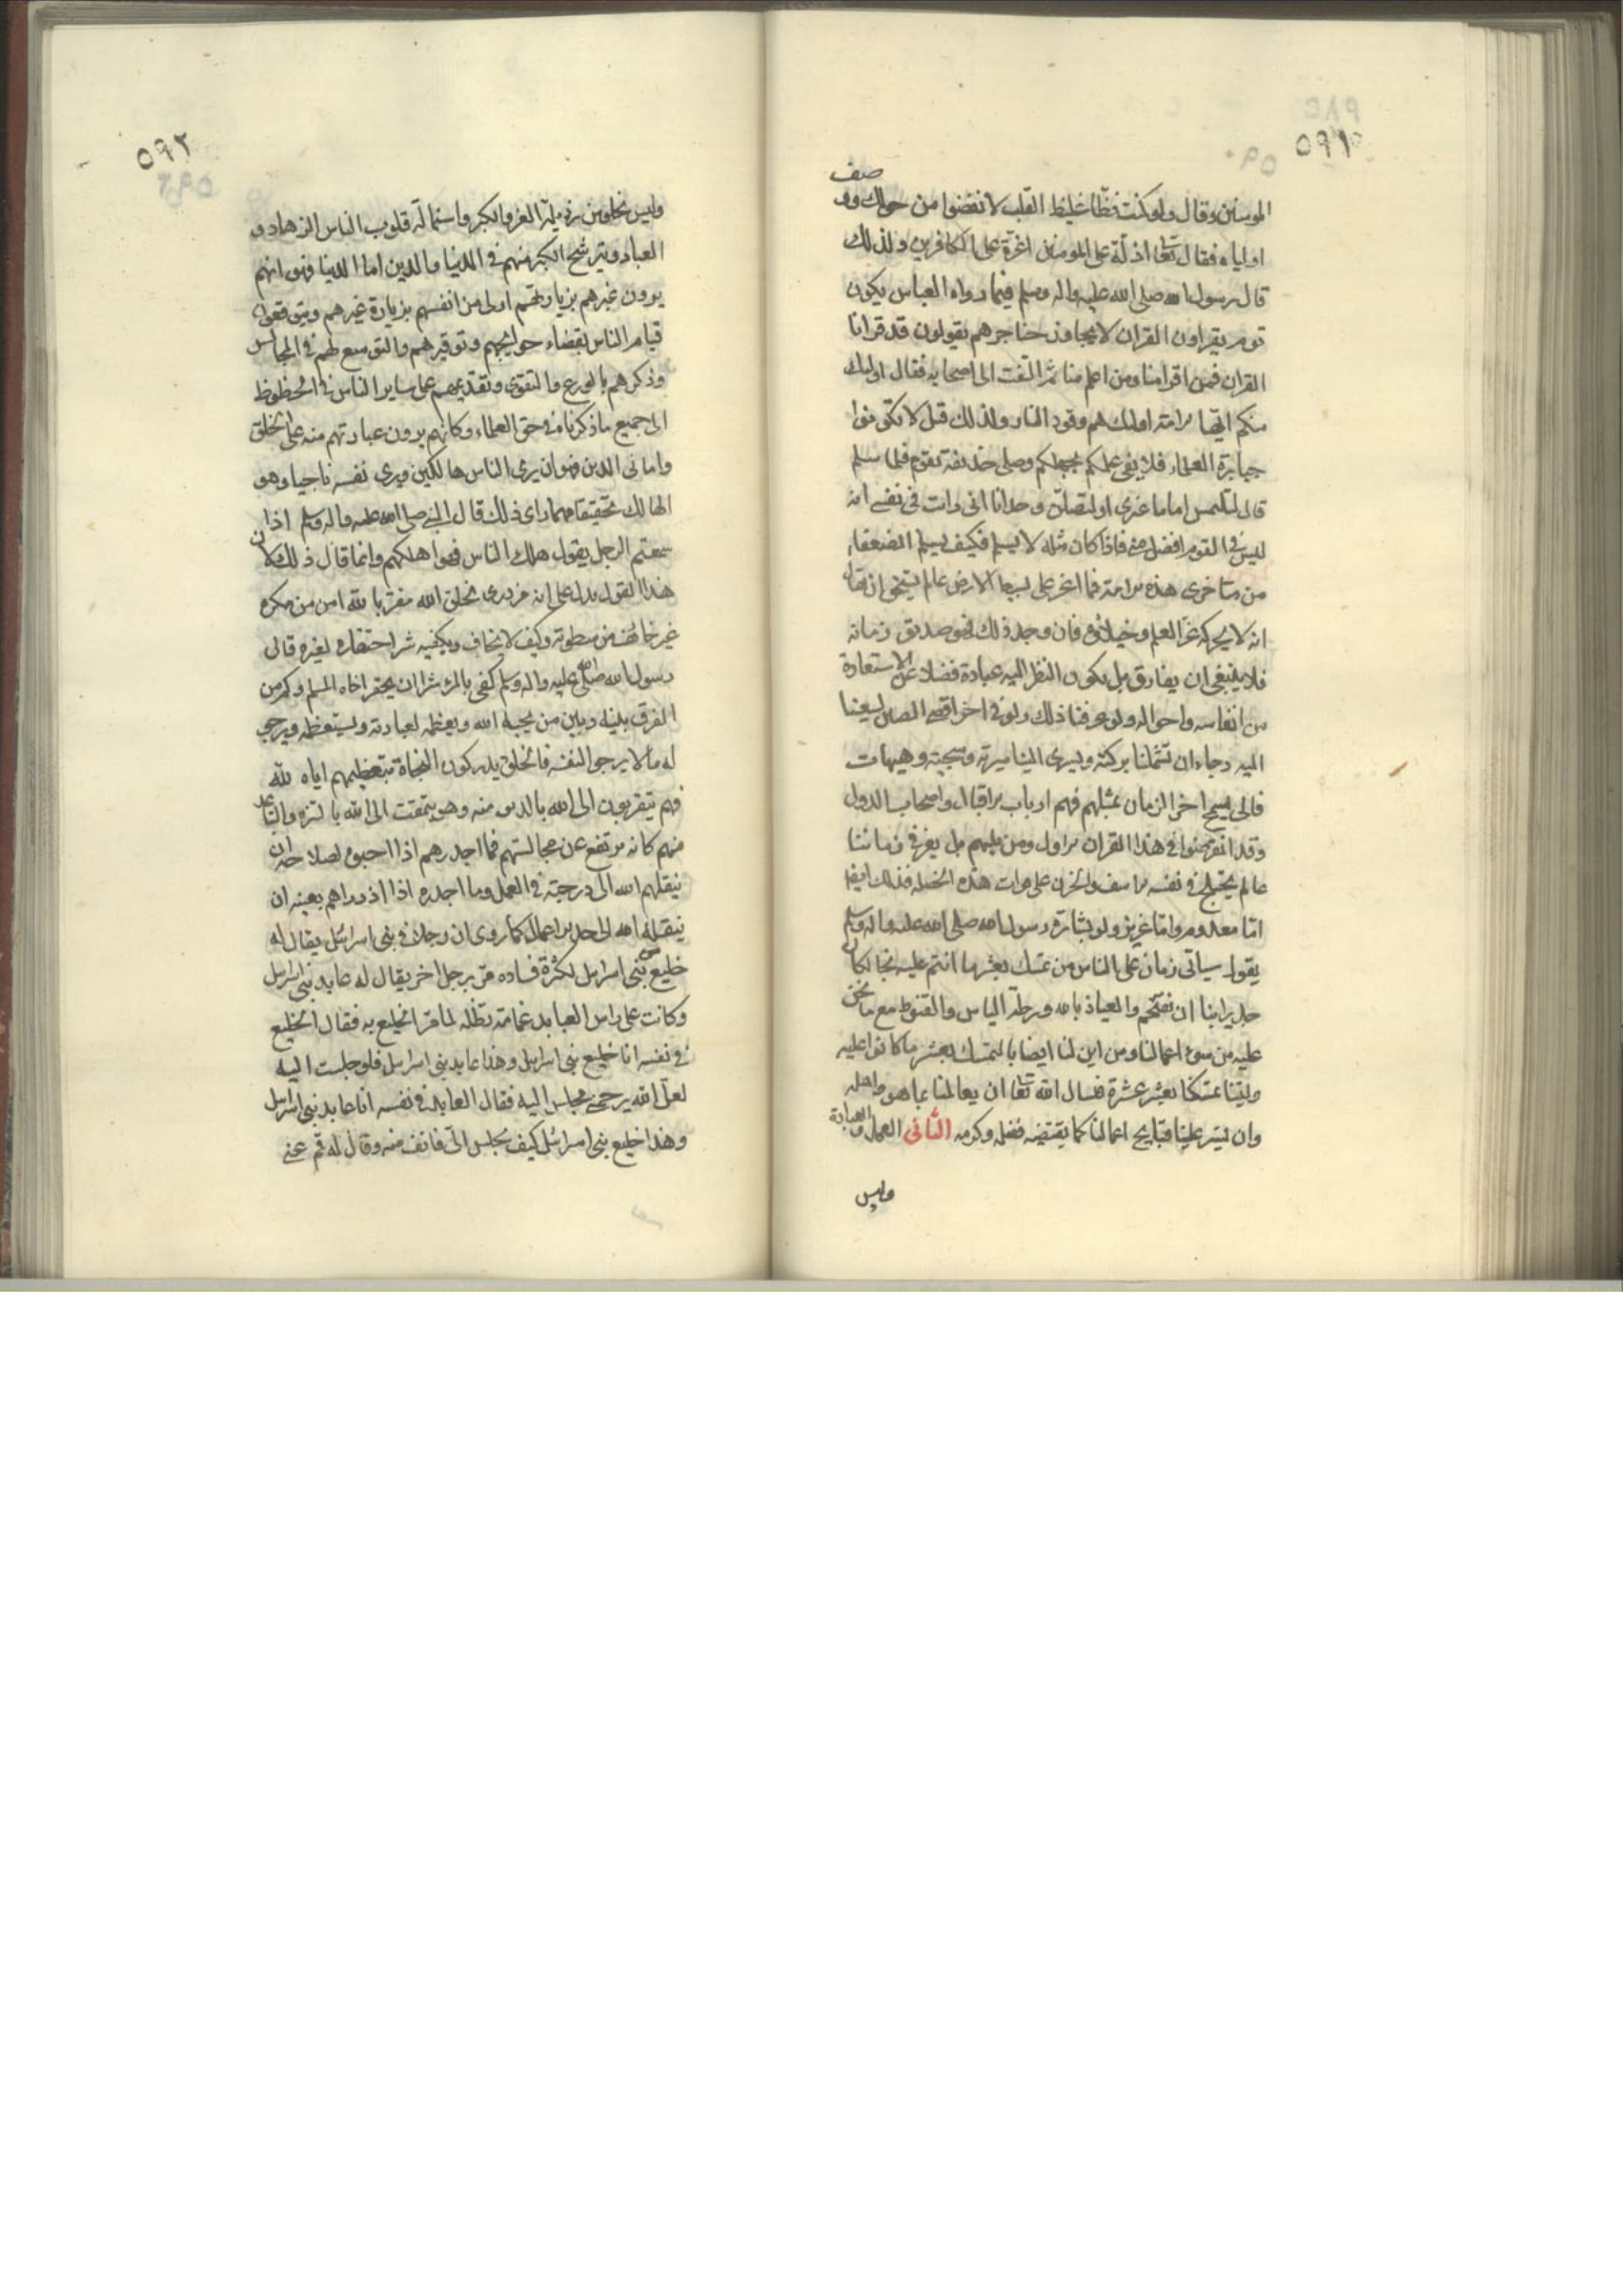 ٥٩١
صف
المومنين وقال ولو كنت فظا غليظ القلب لانفضوا من حولك وو
اولياه فقال تعا اذلة على المومنين اعزة على الكافرين ولذلك
قال رسول الله صلى الله عليه واله وسلم فيما رواه العباس يكون
قوم يقراون القران لا يجاوز حناجرهم يقولون قد قرانا
القران فمن اقرا منا ومن اعلم منا ثم التفت الى اصحابه فقال اوليك
منكم ايها الامة اوليك هم وقود النار ولذلك قيل لا تكونوا
جبابرة العلماء فلا يفي علمكم بجهلكم وصلى حذيفة بقوم فلما سلم
قال لتلتمس اماما غيري او لتصلن وحدانا اني رايت في نفسي انه
ليس في القوم افضل مني فاذا كان مثله لا يسلم فكيف يسلم الضعفاء
من متاخري هذه الامة فما اعز على بسيط الارض عالم يستحق ان يقال
انه لا يحركه عز العلم وخيلاؤه فان وجد ذلك فهو صديق زمانه
فلا ينبغي ان يفارق بل يكون النظر اليه عبادة فضلا عن الاستفادة
من انفاسه واحواله ولو عرفنا ذلك ولو في اخر اقصى الصين لسعينا
اليه رجاء ان تشملنا بركته ويسرى الينا سيرته وسجيته وهيهات
فانى يسمح اخر الزمان بمثلهم فهم ارباب الاقبال واصحاب الدول
وقد انقرضوا في هذا القران الاول ومن يليهم بل يعز في زماننا
عالم يختلج في نفسه الاسف والحزن على فوات هذه الخصلة فذلك ايضا
اما معدوم واما عزيز ولو بشارة رسول الله صلى الله عليه واله وسلم
يقول سياتي زمان على الناس من تمسك بعشر ما انتم عليه نجا لكان
جديرا بنا ان نقتحم والعياذ بالله ورطة الياس والقنوط مع ما نحن
عليه من سوء اعمالنا ومن اين لنا ايضا بالتمسك بعشر ما كانوا عليه
وليتنا تمسكنا بعشر عشرة فنسال الله تعا ان يعاملنا بما هو اهله
وان يستر علينا قبايح اعمالنا كما يقتضيه فضله وكرمه الثاني العمل والعبادة
وليس
٥٩٢
وليس يخلو من رذيلة العز والكبر واستمالة قلوب الناس الزهاد و
العباد ويترشح الكبر منهم في الدنيا والدين اما الدنيا فهو انهم
يرون غيرهم بزيارتهم اولى من انفسهم بزيارة غيرهم ويتوقعون
قيام الناس بقضاء حوايجهم وتوقيرهم والتوسع لهم في المجالس
وذكرهم بالورع والتقوى وتقديمهم على ساير الناس في الحظوظ
الى جميع ما ذكرناه في حق العلماء وكانهم يرون عبادتهم منة على الخلق
واما في الدين فهو ان يرى الناس هالكين ويرى نفسه ناجيا وهو
الهالك تحقيقا مهما راى ذلك قال النبي صلى الله عليه واله وسلم اذا
سمعتم الرجل يقول هلك الناس فهو اهلكهم وانما قال ذلك لان
هذا القول يدل على انه مزدرى بخلق الله مغتر بالله امن من مكره
غير خائف من سطوته وكيف لا يخاف ويكفيه شرا احتقاره لغيره قال
رسول الله صلى الله عليه واله وسلم كفى بالمرء شرا ان يحقر اخاه المسلم وكم من
الفرق بينه وبين من يحبه الله ويعظمه لعبادته ويستعظمه ويرجو
له ما لا يرجو لنفسه فالخلق يدركون النجاة بتعظيمهم اياه لله
فهم يتقربون الى الله بالدنو منه وهو يتمقت الى الله بالتنزه والتباعد
منهم كانه مرتفع عن مجالستهم فما اجدرهم اذا احبوه لصلاحه ان
ينقلهم الله الى درجته في العمل وما اجدره اذا ازدراهم بعينه ان
ينقله الله الى حد الاهمال كما روى ان رجلا في بني اسرائيل يقال له
خليع بني اسرائيل لكثرة فساده مر برجل اخر يقال له عابد بني اسرائيل
وكانت على راس العابد غمامة تظله لما مر الخليع به فقال الخليع
في نفسه انا خليع بني اسرائيل وهذا عابد بني اسرائيل فلو جلست اليه
لعل الله يرحمني فجلس اليه فقال العابد في نفسه انا عابد بني اسرائيل
وهذا خليع بني اسرائيل كيف يجلس الي فانف منه وقال له قم عني